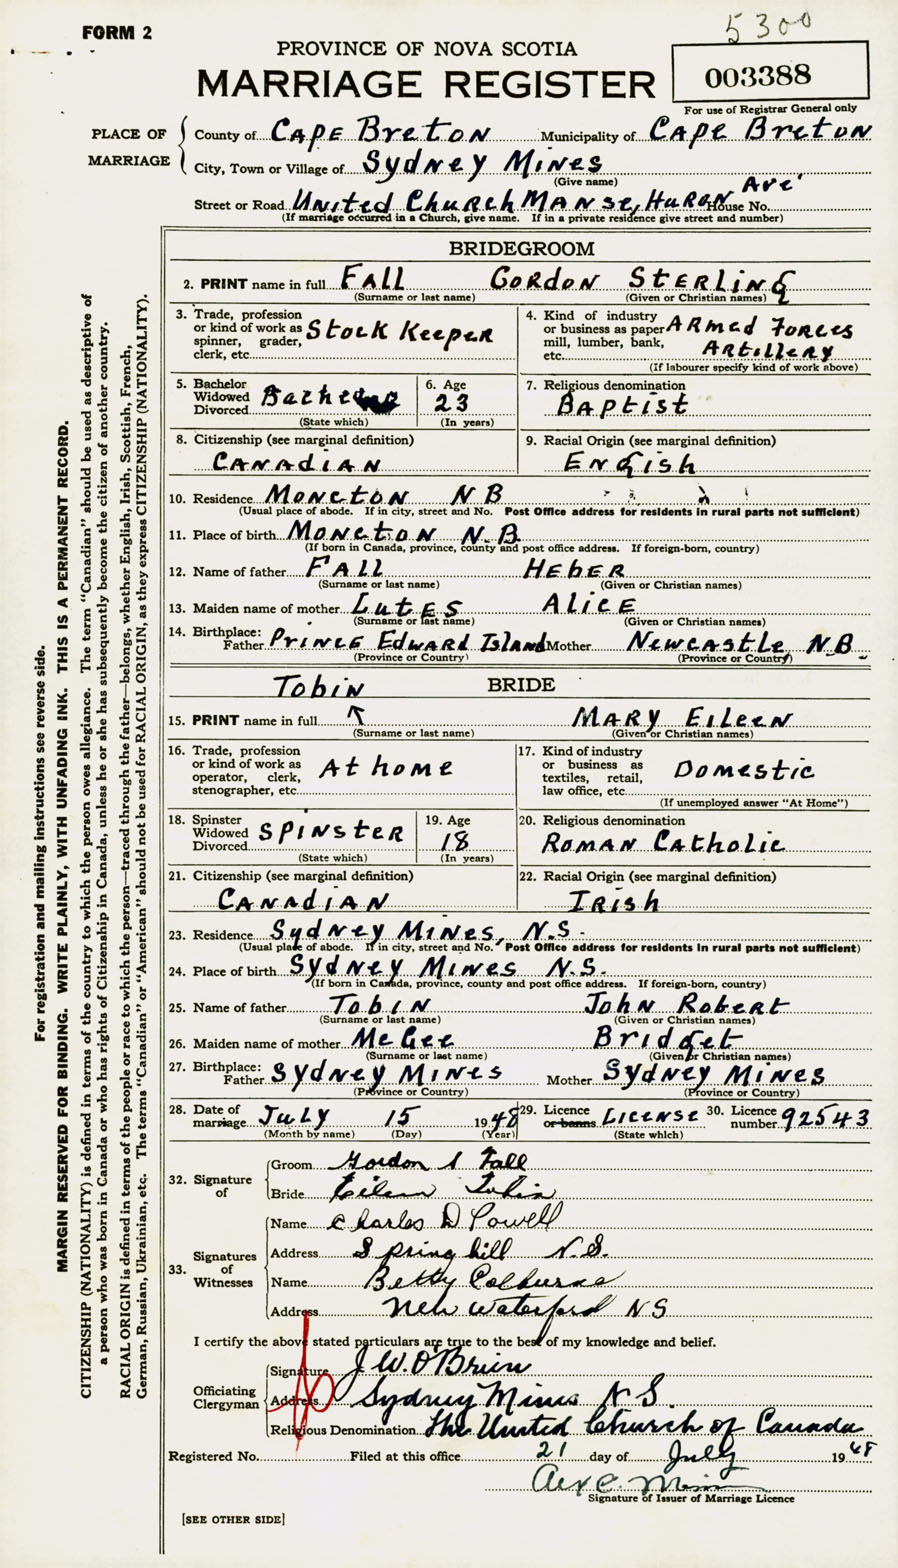 5300
FORM 2
PROVINCE OF NOVA SCOTIA
MARRIAGE REGISTER
003388
For use of Registrar General only
PLACE OF MARRIAGE
County of CAPE BRETON Municipality of CAPE BRETON
City, Town or Village of SYDNEY MINES
(Give name)
Ave'
Street or Road United Church Manse, Huron House No.
(If marriage occurred in a Church, give name. If in a private residence give street and number)
BRIDEGROOM
2. PRINT name in full FALL GORDON STERLING
(Surname or last name) (Given or Christian names)
3. Trade, profession or kind of work as spinner, grader, clerk, etc. Stock Keeper
4. Kind of industry or business as paper mill, lumber, bank, etc. Armed Forces Artillery
(If labourer specify kind of work above)
5. Bachelor Widowed Divorced
(State which)
6. Age 23
(In years)
7. Religious denomination Baptist
8. Citizenship (see marginal definition) CANADIAN
9. Racial Origin (see marginal definition) English
10. Residence MONCTON NB
(Usual place of abode. If in city, street and No. Post Office address for residents in rural parts not sufficient)
11. Place of birth MONCTON N.B.
(If born in Canada, province, county and post office address. If foreign-born, country)
12. Name of father FALL HEBER
(Surname or last name) (Given or Christian names)
13. Maiden name of mother LUTES ALICE
(Surname or last name) (Given or Christian names)
14. Birthplace: Father PRINCE EDWARD ISLAND Mother NEWCASTLE N.B.
(Province or Country) (Province or Country)
TOBIN BRIDE
15. PRINT name in full MARY EILEEN
(Surname or last name) (Given or Christian names)
16. Trade, profession or kind of work as operator, clerk, stenographer, etc. At home
17. Kind of industry or business as textiles, retail, law office, etc. Domestic
(If unemployed answer "At Home")
18. Spinster Widowed Divorced SPINSTER
(State which)
19. Age 18
(In years)
20. Religious denomination ROMAN CATHOLIC
21. Citizenship (see marginal definition) CANADIAN
22. Racial Origin (see marginal definition) IRISH
23. Residence Sydney Mines, N.S.
(Usual place of abode. If in city, street and No. Post Office address for residents in rural parts not sufficient)
24. Place of birth Sydney Mines N.S.
(If born in Canada, province, county and post office address. If foreign-born, country)
25. Name of father TOBIN JOHN ROBERT
(Surname or last name) (Given or Christian names)
26. Maiden name of mother McGee Bridget
(Surname or last name) (Given or Christian names)
27. Birthplace: Father Sydney Mines Mother Sydney Mines
(Province or Country) (Province or Country)
28. Date of marriage July 15 1948
(Month by name) (Day) (Year)
29. Licence or banns LICENSE
(State which)
30. Licence number 92543
32. Signature of
Groom Gordon S Fall
Bride Eileen Tobin
33. Signatures of Witnesses
Name Charles D Powell
Address Springhill N.S.
Name Betty Colburne
Address New Waterford NS
I certify the above stated particulars are true to the best of my knowledge and belief.
Officiating Clergyman
Signature J W. O'Brien
Address Sydney Mines N S.
Religious Denomination The United Church of Canada
Registered No. Filed at this office 21 day of July 1948
Signature of Issuer of Marriage Licence
[SEE OTHER SIDE]
For registration and mailing instructions see reverse side.
MARGIN RESERVED FOR BINDING. WRITE PLAINLY, WITH UNFADING INK. THIS IS A PERMANENT RECORD.
CITIZENSHIP (NATIONALITY) is defined in terms of the country to which the person owes allegiance. The term "Canadian" should be used as descriptive of
a person who was born in Canada or who has rights of Citizenship in Canada, unless he or she has subsequently become the citizen of another country.
RACIAL ORIGIN is defined in terms of the people or race to which the person—traced through the father—belongs, whether English, Irish, Scottish, French,
German, Russian, Ukrainian, etc. The terms "Canadian" or "American" should not be used for RACIAL ORIGIN, as they express CITIZENSHIP (NATIONALITY).